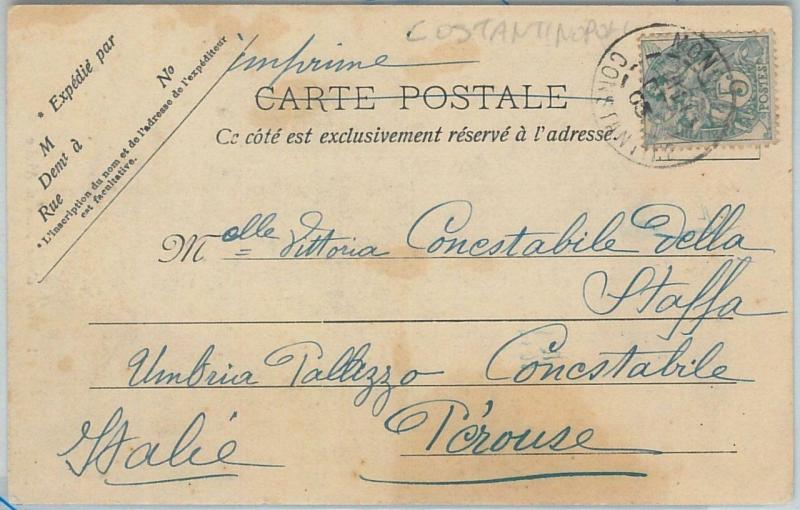 COSTANTINOPOLI
imprimé
CARTE POSTALE
Ce côté est exclusivement réservé à l'adresse.
* Expédié par
M
No
Demt à
Rue
* L'inscription du nom et de l'adresse de l'expéditeur
est facultative.
5
POSTES
Melle Vittoria Conestabile Della
Staffa
Umbria Palazzo Conestabile
Italie Pérouse